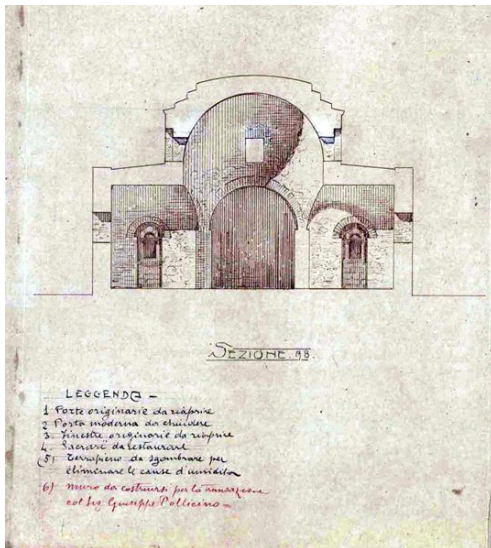 SEZIONE AB.
LEGGENDA -
1 Porte originarie da riaprire
2. Porta moderna da chiudere
3. Finestre originarie da riaprire
4. "Sacrari" da restaurare
(5) Terrapieno da sgombrare per
eliminare le cause d'umidità
6) Muro da costruirsi per la transazione
col Sig Giuseppe Pollicino -